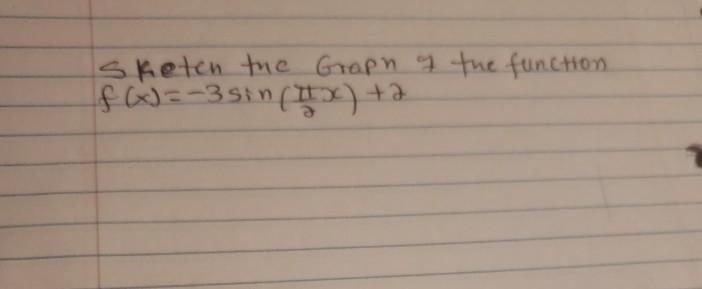 Sketch the Graph of the function
f(x)=-3sin(π/2 x)+2